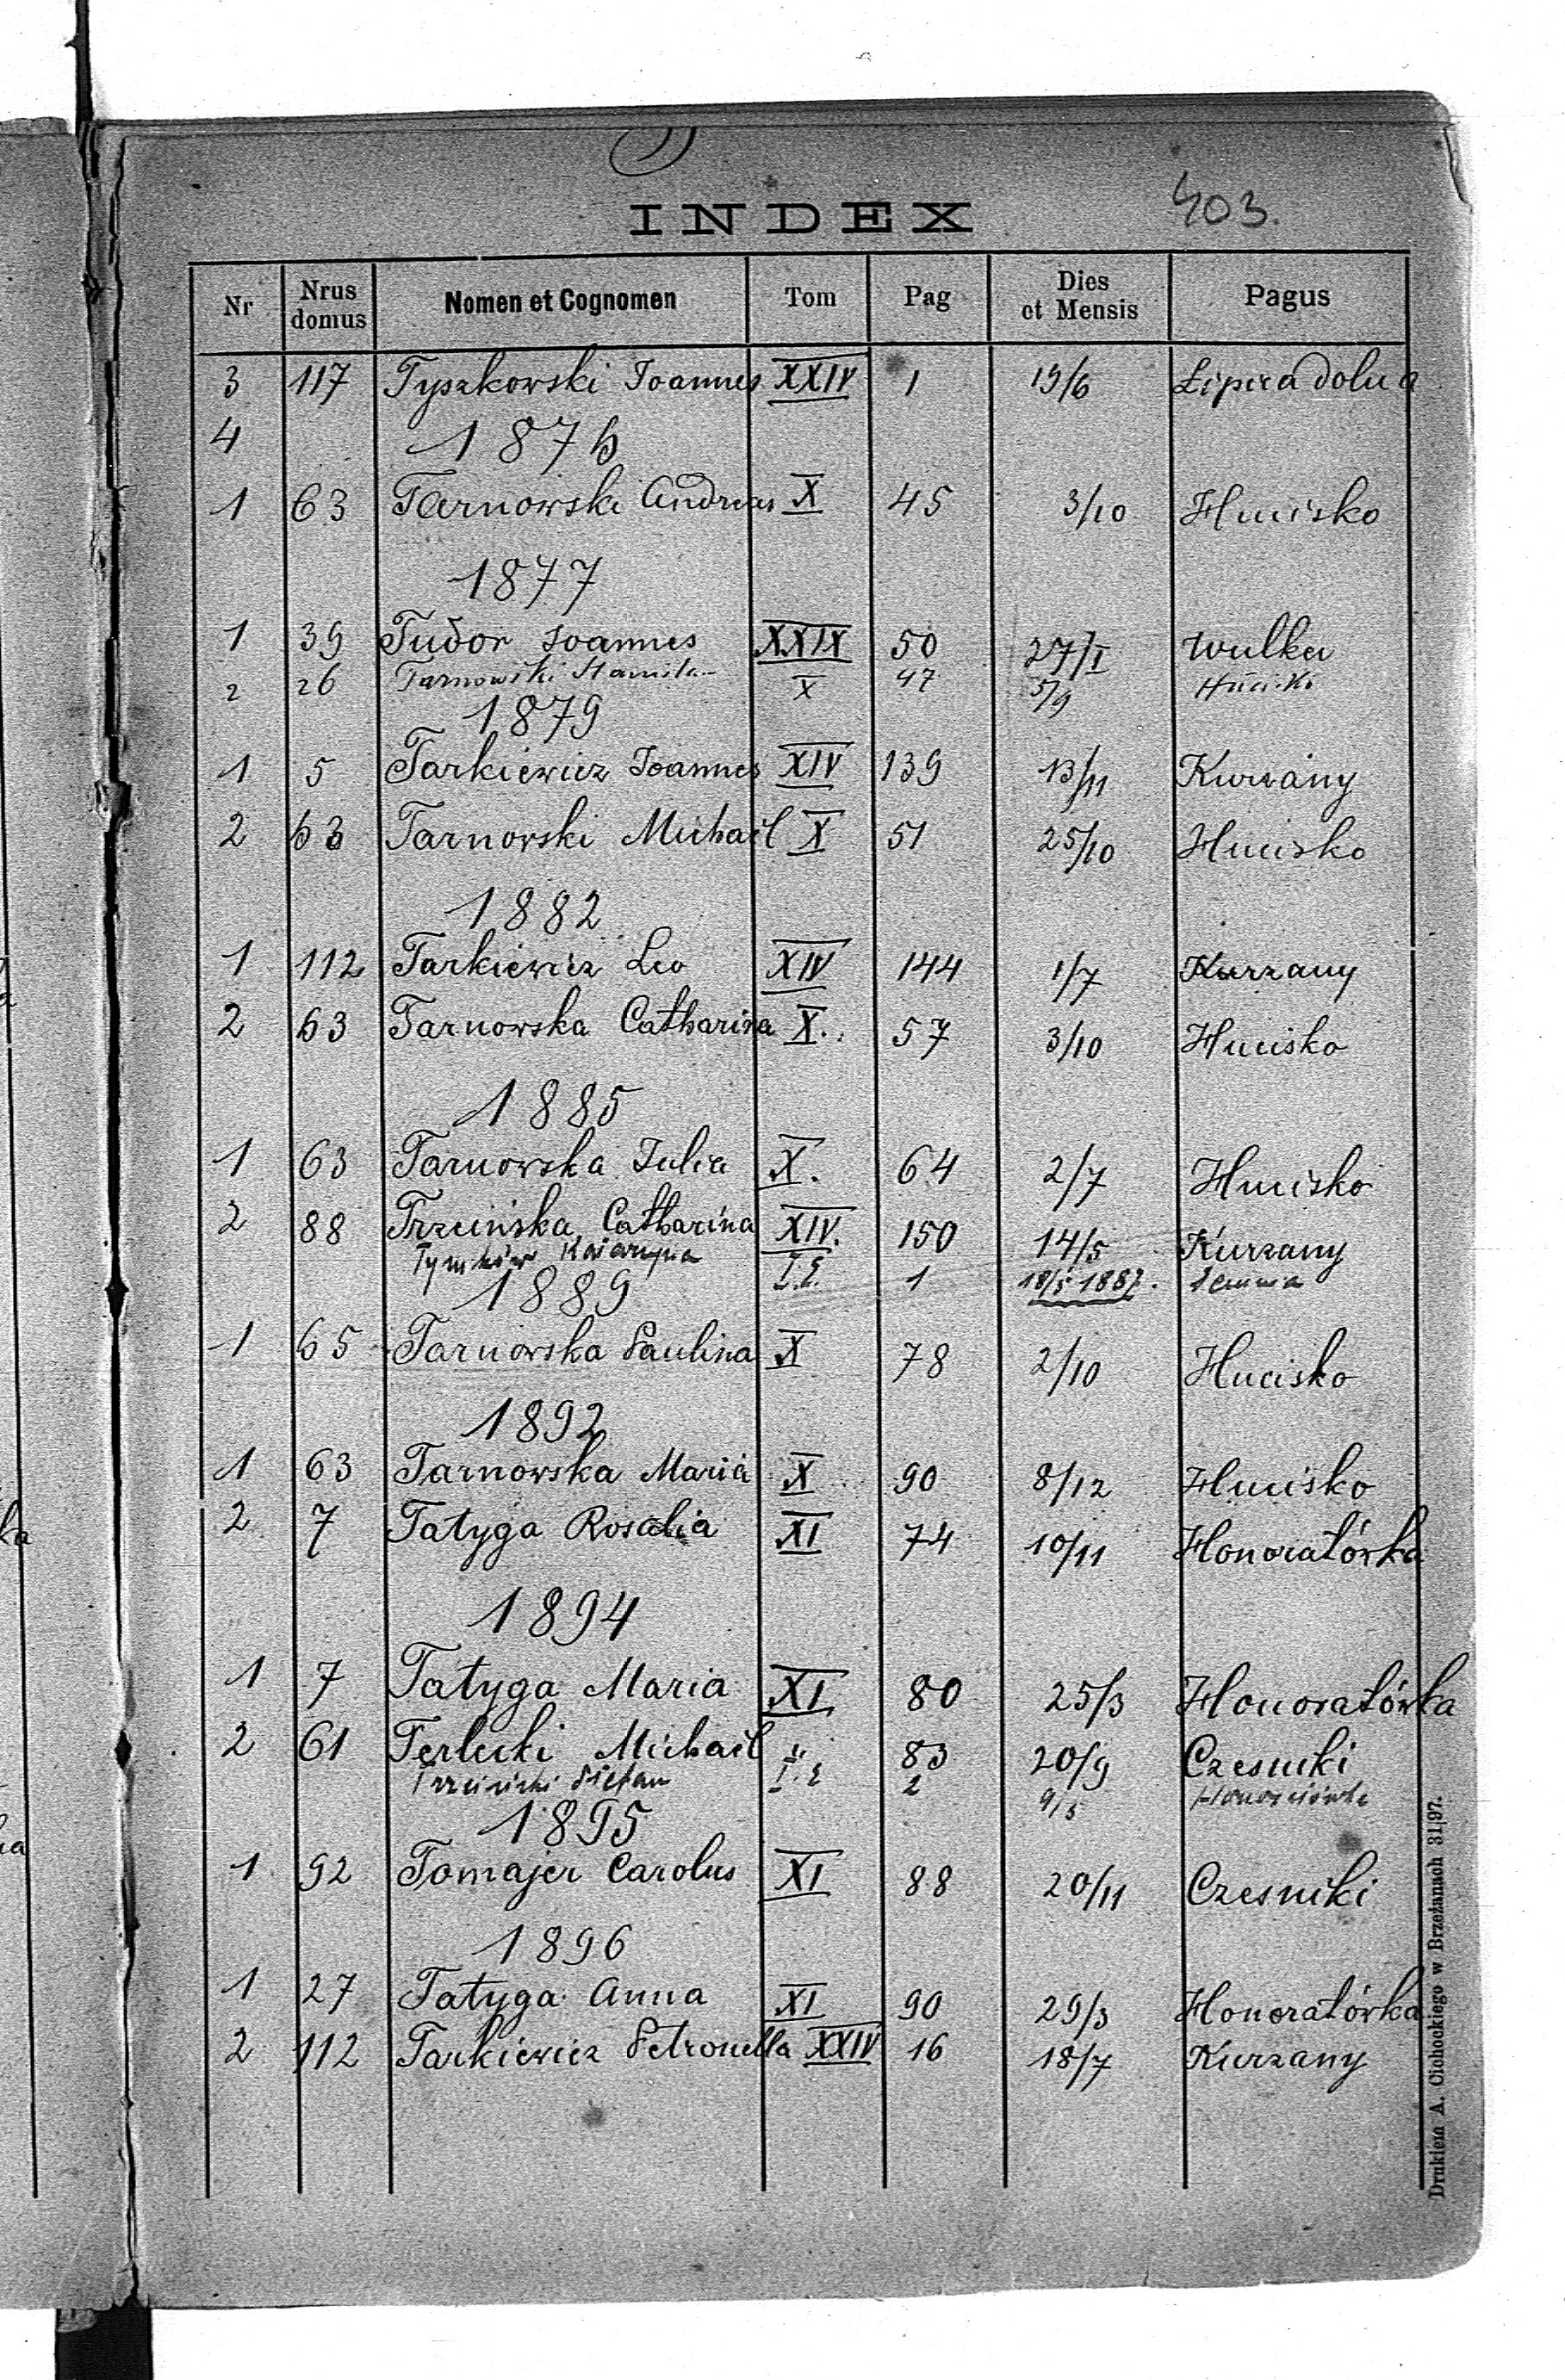 403.
INDEX
Nr Nrus domus Nomen et Cognomen Tom Pag Dies et Mensis Pagus
3 117 Tyszkowski Joannes XXIV 1 19/6 Lipica dolna
4 1876
1 63 Tarnowski Andreas X 45 3/10 Hucisko
1877
1 39 Tudor Joannes XXIX 50 27/I Wulka
2 26 Tarnowski Stanisla X 47 5/9 Hucisko
1879
1 5 Tarkiewicz Joannes XIV 139 13/11 Kurzany
2 63 Tarnowski Michael X 51 25/10 Hucisko
1882
1 112 Tarkiewicz Leo XIV 144 1/7 Kurzany
2 63 Tarnowska Catharina X. 57 3/10 Hucisko
1885
1 63 Tarnowska Julia X. 64 2/7 Hucisko
2 88 Trzcińska Catharina XIV. 150 14/5 Kurzany
Katarzyna 1 18/5 1887.
1889
1 65 Tarnowska Paulina X 78 2/10 Hucisko
1892
1 63 Tarnowska Maria X 90 8/12 Hucisko
2 7 Tatyga Rosalia XI 74 10/11 Honoratówka
1894
1 7 Tatyga Maria XI 80 25/3 Honoratówka
2 61 Terlecki Michael " 83 20/9 Czesniki
Trzciński Stefan 2 9/5
1895
1 92 Tomajer Carolus XI 88 20/11 Czesniki
1896
1 27 Tatyga Anna XI 90 29/3 Honoratówka
2 112 Tarkiewicz Petronella XXIV 16 18/7 Kurzany
Drukiem A. Cichockiego w Brzeżanach 31|97.